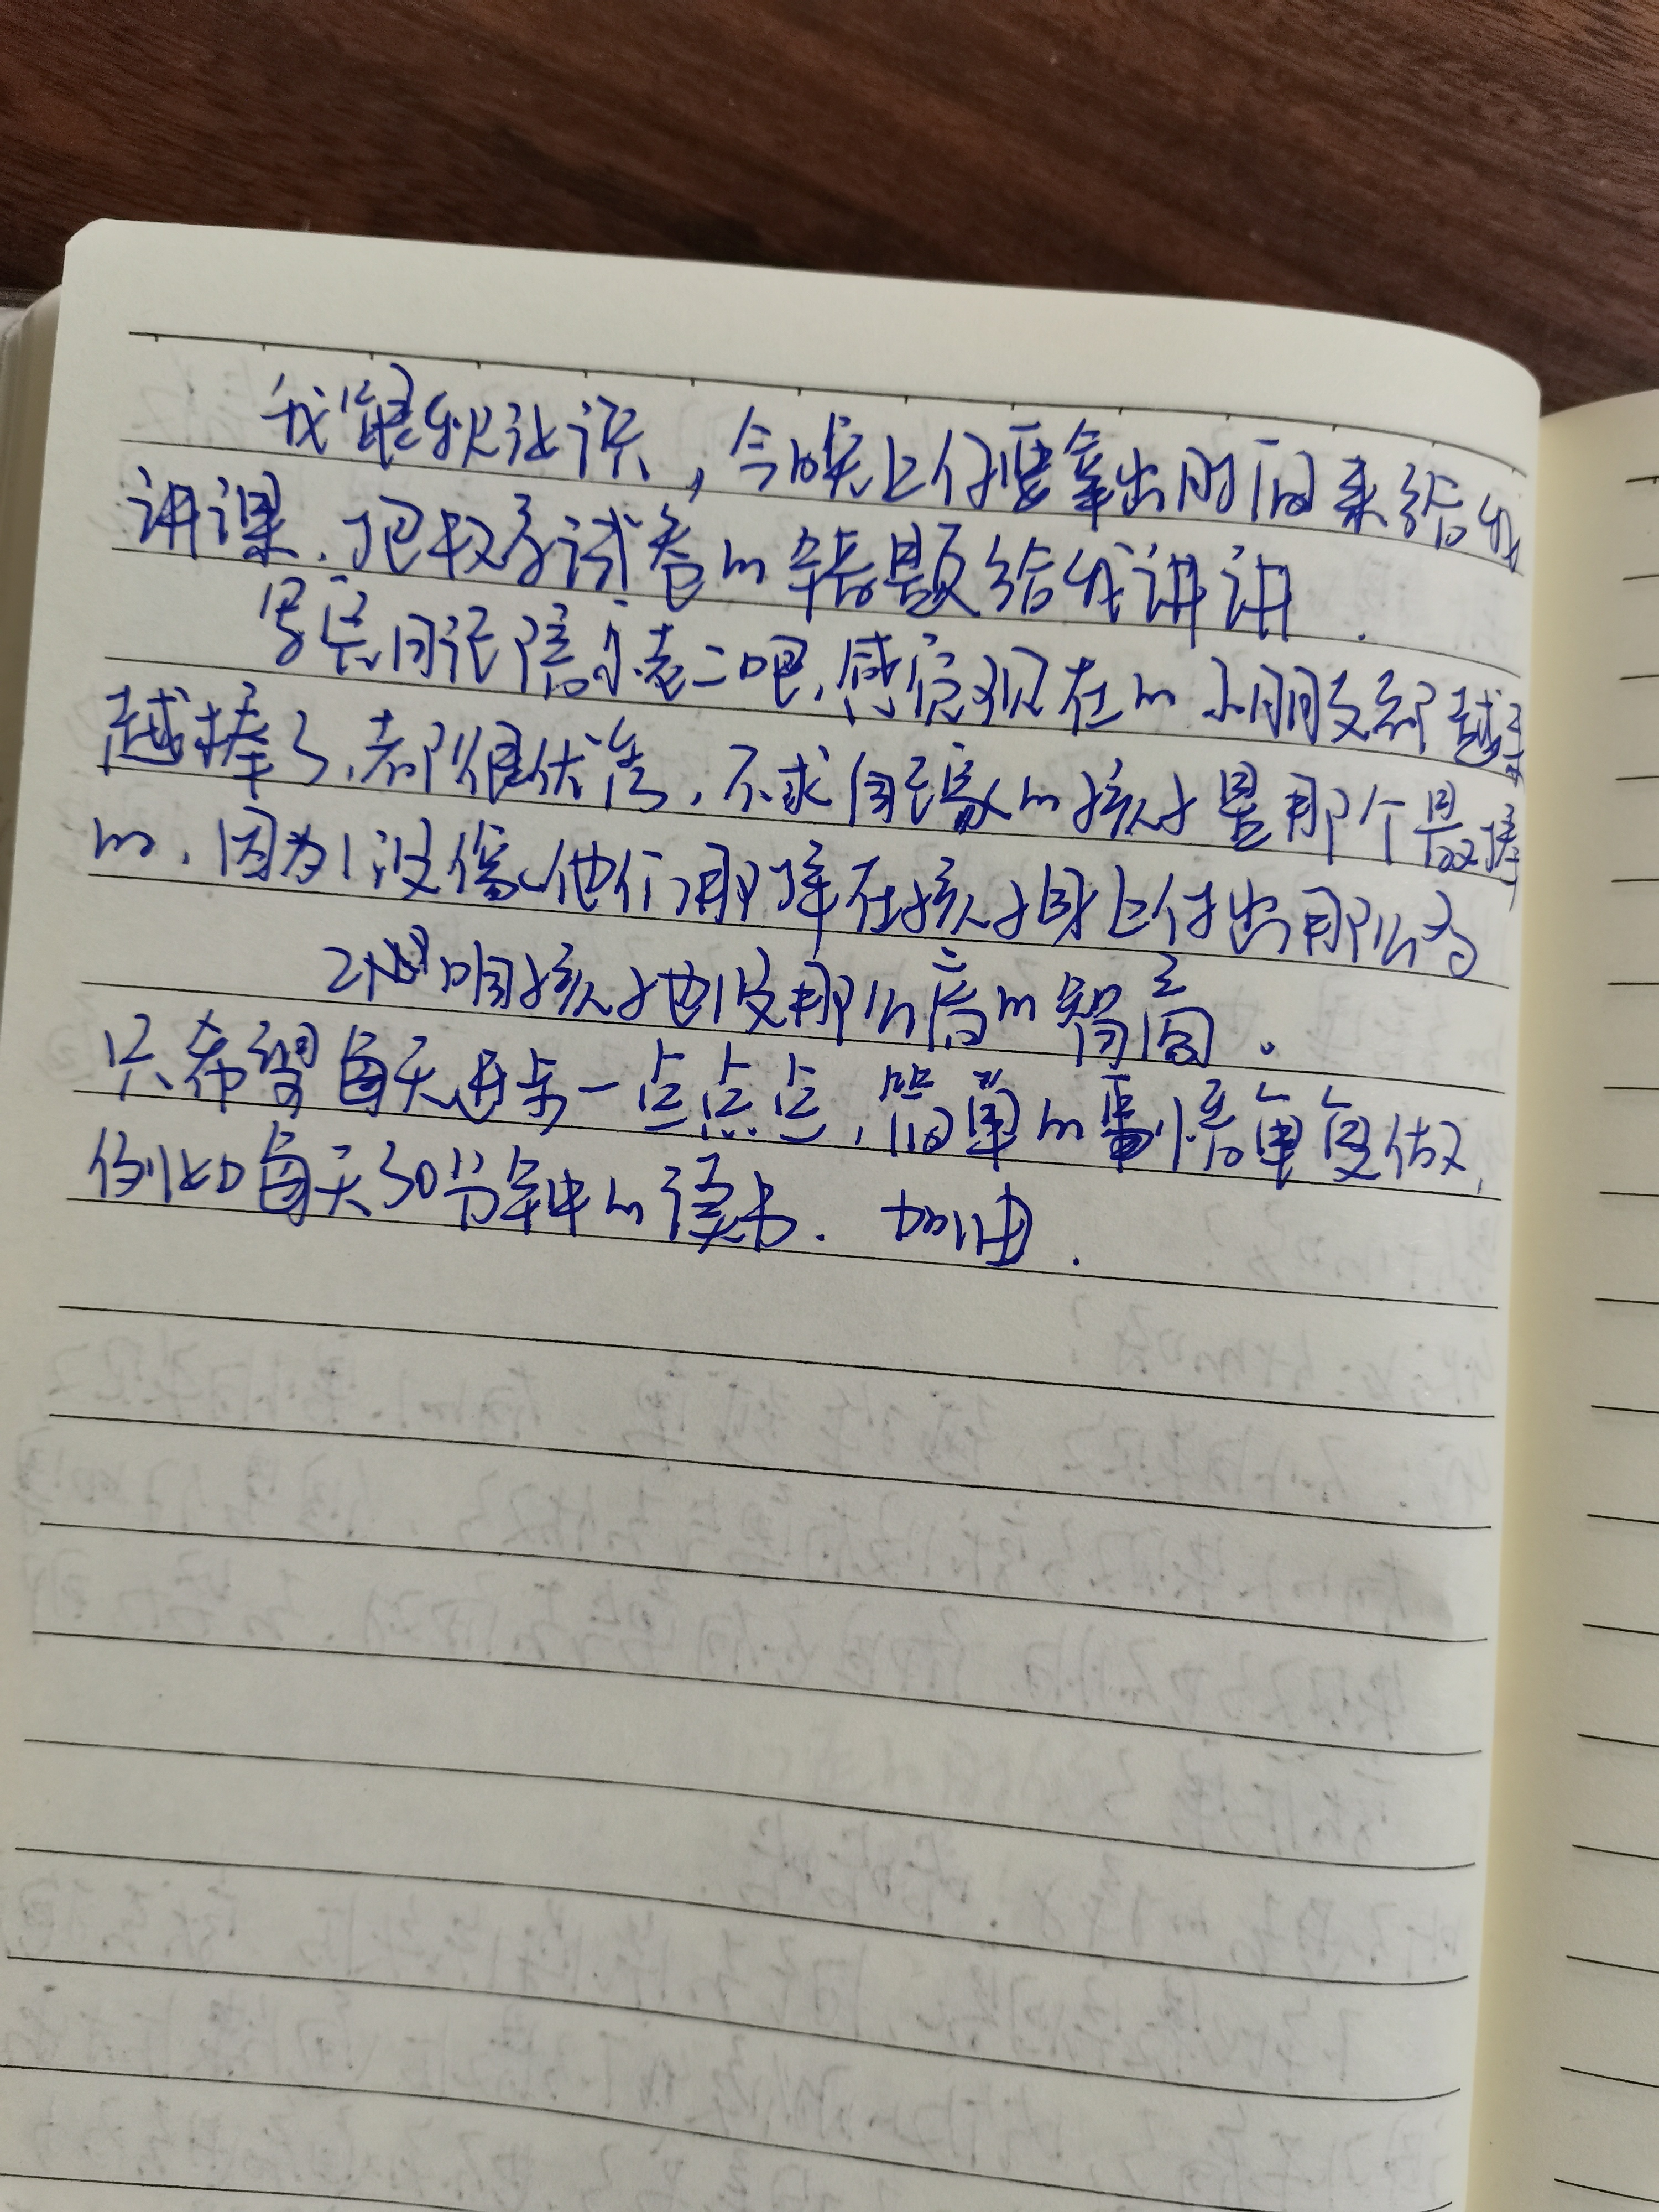 我跟欣讲，今晚上你要拿出时间来给我
讲课，把数学试卷的错题给我讲讲．
写完日记陪小老二吧，感觉现在的小朋友都越来
越棒了，都很优秀，不求自己家的孩子是那个最棒
的，因为没像他们那样在孩子身上付出那么多
咱孩子也没那么高的智商。
只希望每天进步一点点点，简单的事情重复做，
例如每天30分钟的读书．加油．